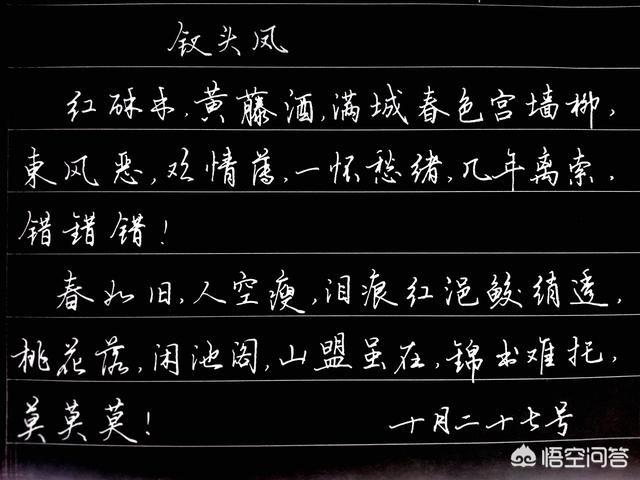 钗头凤
红酥手,黄藤酒,满城春色宫墙柳,
東风恶,欢情薄,一怀愁绪,几年离索,
错錯错!
春如旧,人空瘦,泪痕红浥鲛绡透,
桃花落,闲池阁,山盟虽在,锦书难托,
莫莫莫! 十月二十七号
悟空问答